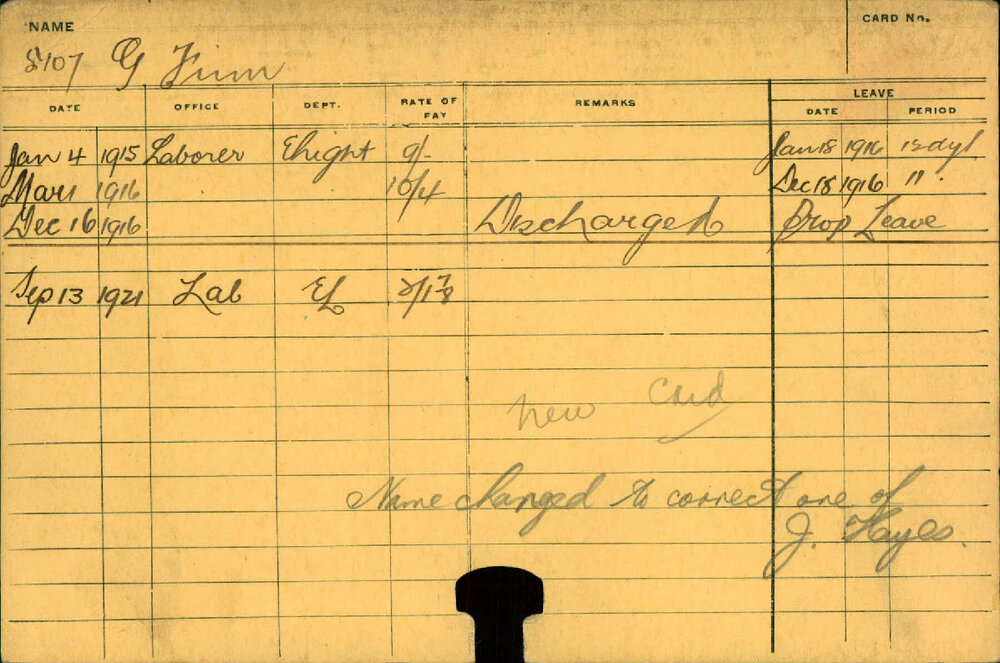 NAME
CARD No.
8107 G Finn
DATE OFFICE DEPT. RATE OF PAY REMARKS LEAVE
DATE PERIOD
Jan 4 1915 Laborer Elight 9/- Jan 18 1916 12 dys
Mar 1 1916 10/4 Dec 18 1916 " .
Dec 16 1916 Discharged Prop Leave
Sep 13 1921 Lab EL
new card
Name changed to correct one of
J. Hayes.